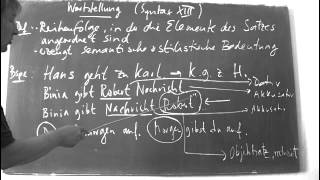 Wortstellung (Syntax XIII)
Def. - Reihenfolge, in der die Elemente des Satzes
angeordnet sind
- erzeugt semantische & stilistische Bedeutung
Bspe: Hans geht zu Karl → K. g. z. H.
Binia gibt Robert Nachricht → Dativ v
Binia gibt Nachricht Robert
auf. Morgen gibst du auf.
Objektsatz,